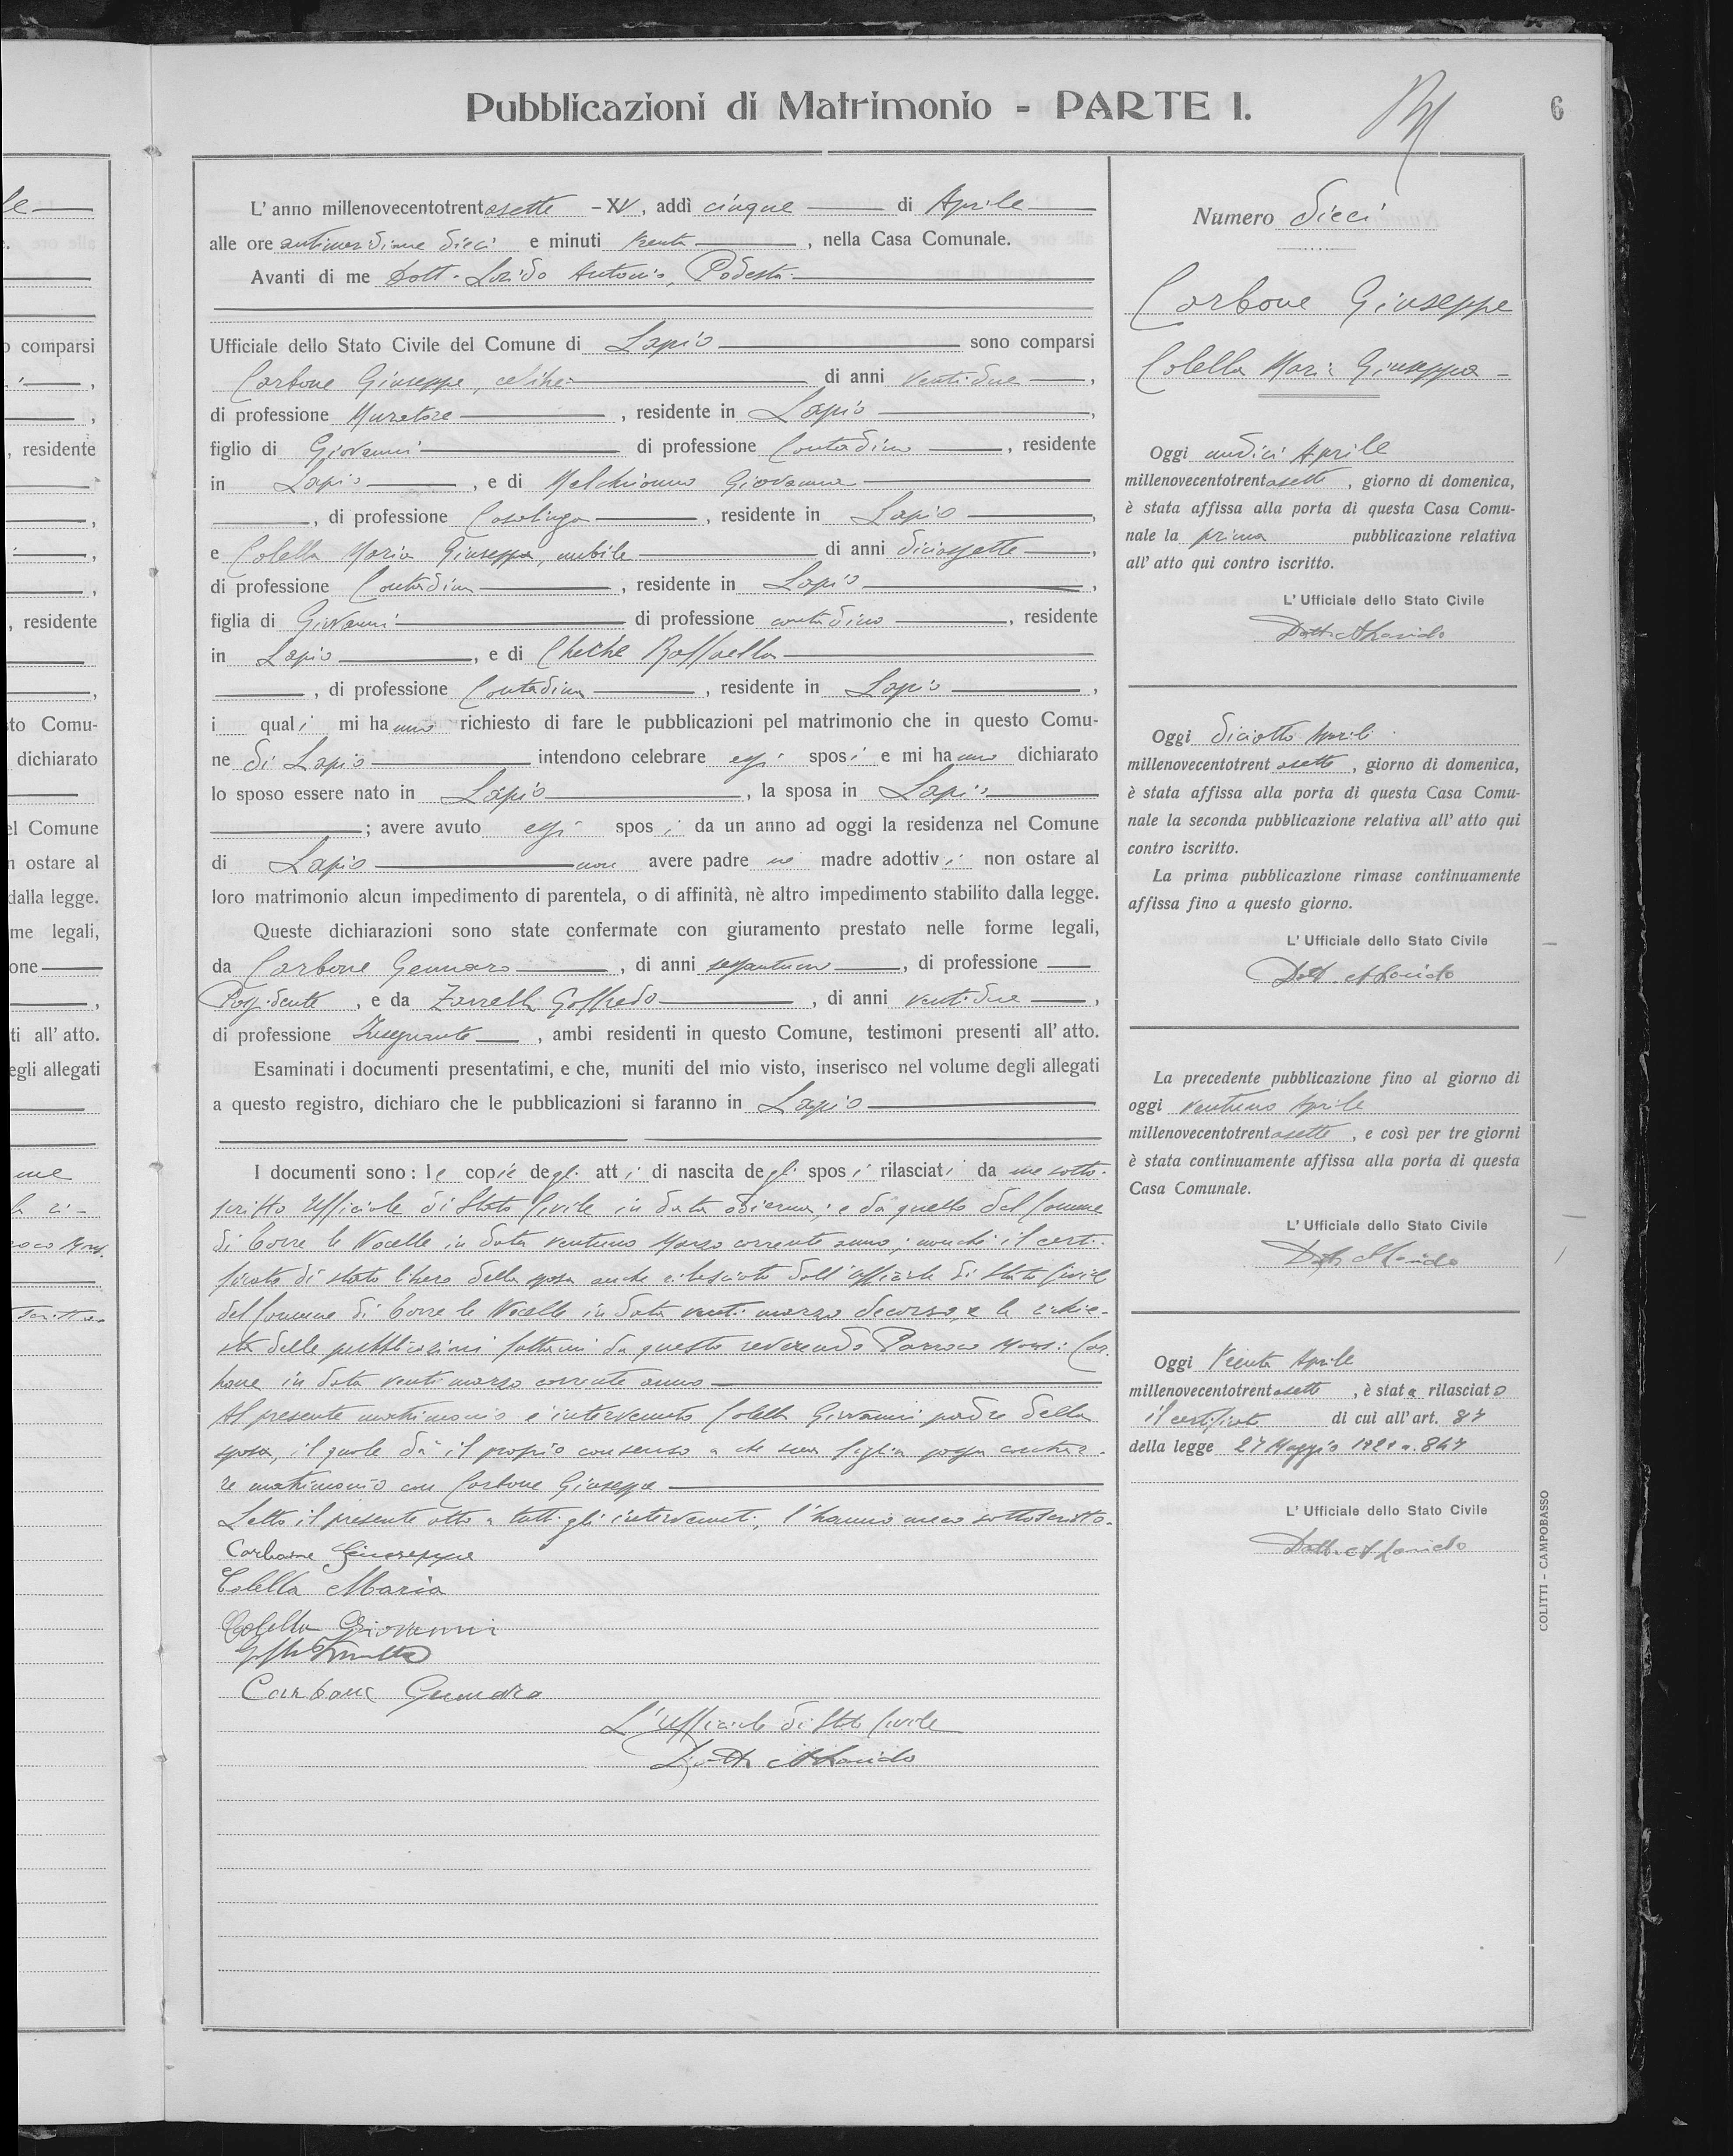 Pubblicazioni di Matrimonio - PARTE I.
6
L'anno millenovecentotrentasette - XV, addì cinque di Aprile
alle ore antimeridiane dieci e minuti trenta, nella Casa Comunale.
Avanti di me Dott. Lorido Antonio, Podestà
Ufficiale dello Stato Civile del Comune di Lapio sono comparsi
Carbone Giuseppe, celibe di anni ventidue,
di professione Muratore, residente in Lapio,
figlio di Giovanni di professione Contadino, residente
in Lapio, e di Melchionno Giovanna
, di professione Casalinga, residente in Lapio,
e Colella Maria Giuseppa, nubile di anni diciassette,
di professione Contadina, residente in Lapio,
figlia di Giovanni di professione contadino, residente
in Lapio, e di Cheche Raffaella
, di professione Contadina, residente in Lapio,
i quali mi hanno richiesto di fare le pubblicazioni pel matrimonio che in questo Comu-
ne di Lapio intendono celebrare essi sposi e mi hanno dichiarato
lo sposo essere nato in Lapio, la sposa in Lapio
; avere avuto essi sposi da un anno ad oggi la residenza nel Comune
di Lapio non avere padre nè madre adottivi non ostare al
loro matrimonio alcun impedimento di parentela, o di affinità, nè altro impedimento stabilito dalla legge.
Queste dichiarazioni sono state confermate con giuramento prestato nelle forme legali,
da Carbone Gennaro, di anni sessantuno, di professione
Possidente, e da Zarrella Goffredo, di anni ventidue,
di professione Insegnante, ambi residenti in questo Comune, testimoni presenti all'atto.
Esaminati i documenti presentatimi, e che, muniti del mio visto, inserisco nel volume degli allegati
a questo registro, dichiaro che le pubblicazioni si faranno in Lapio
I documenti sono: le copie degli atti di nascita degli sposi rilasciati da me sotto-
scritto Ufficiale di Stato Civile in data odierna; e da quello del Comune
di Torre le Nocelle in data ventuno Marzo corrente anno; nonchè il certi-
ficato di stato libero della sposa anche rilasciato dall'Ufficiale di Stato Civile
del Comune di Torre le Nocelle in data venti marzo decorso, e la richie-
sta delle pubblicazioni fattami da questo reverendo Parroco Mons: Car-
bone in data venti marzo corrente anno
Al presente matrimonio è intervenuto Colella Giovanni padre della
sposa, il quale dà il proprio consenso a che sua figlia possa contrar-
re matrimonio con Carbone Giuseppe
Letto il presente atto a tutti gli intervenuti, l'hanno meco sottoscritto.
Carbone Giuseppe
Colella Maria
Colella Giovanni
Carbone Gennaro
L'Ufficiale di Stato Civile
Dott. A Lorido
Numero dieci
Carbone Giuseppe
Colella Maria Giuseppa
Oggi undici Aprile
millenovecentotrentasette, giorno di domenica,
è stata affissa alla porta di questa Casa Comu-
nale la prima pubblicazione relativa
all'atto qui contro iscritto.
L'Ufficiale dello Stato Civile
Dott. A Lorido
Oggi diciotto Aprile
millenovecentotrentasette, giorno di domenica,
è stata affissa alla porta di questa Casa Comu-
nale la seconda pubblicazione relativa all'atto qui
contro iscritto.
La prima pubblicazione rimase continuamente
affissa fino a questo giorno.
L'Ufficiale dello Stato Civile
Dott. A Lorido
La precedente pubblicazione fino al giorno di
oggi ventuno Aprile
millenovecentotrentasette, e così per tre giorni
è stata continuamente affissa alla porta di questa
Casa Comunale.
L'Ufficiale dello Stato Civile
Dott. A Lorido
Oggi trenta Aprile
millenovecentotrentasette, è stata rilasciato
il certificato di cui all'art. 87
della legge 27 Maggio 1929 n. 847
L'Ufficiale dello Stato Civile
Dott. A Lorido
COLITTI - CAMPOBASSO